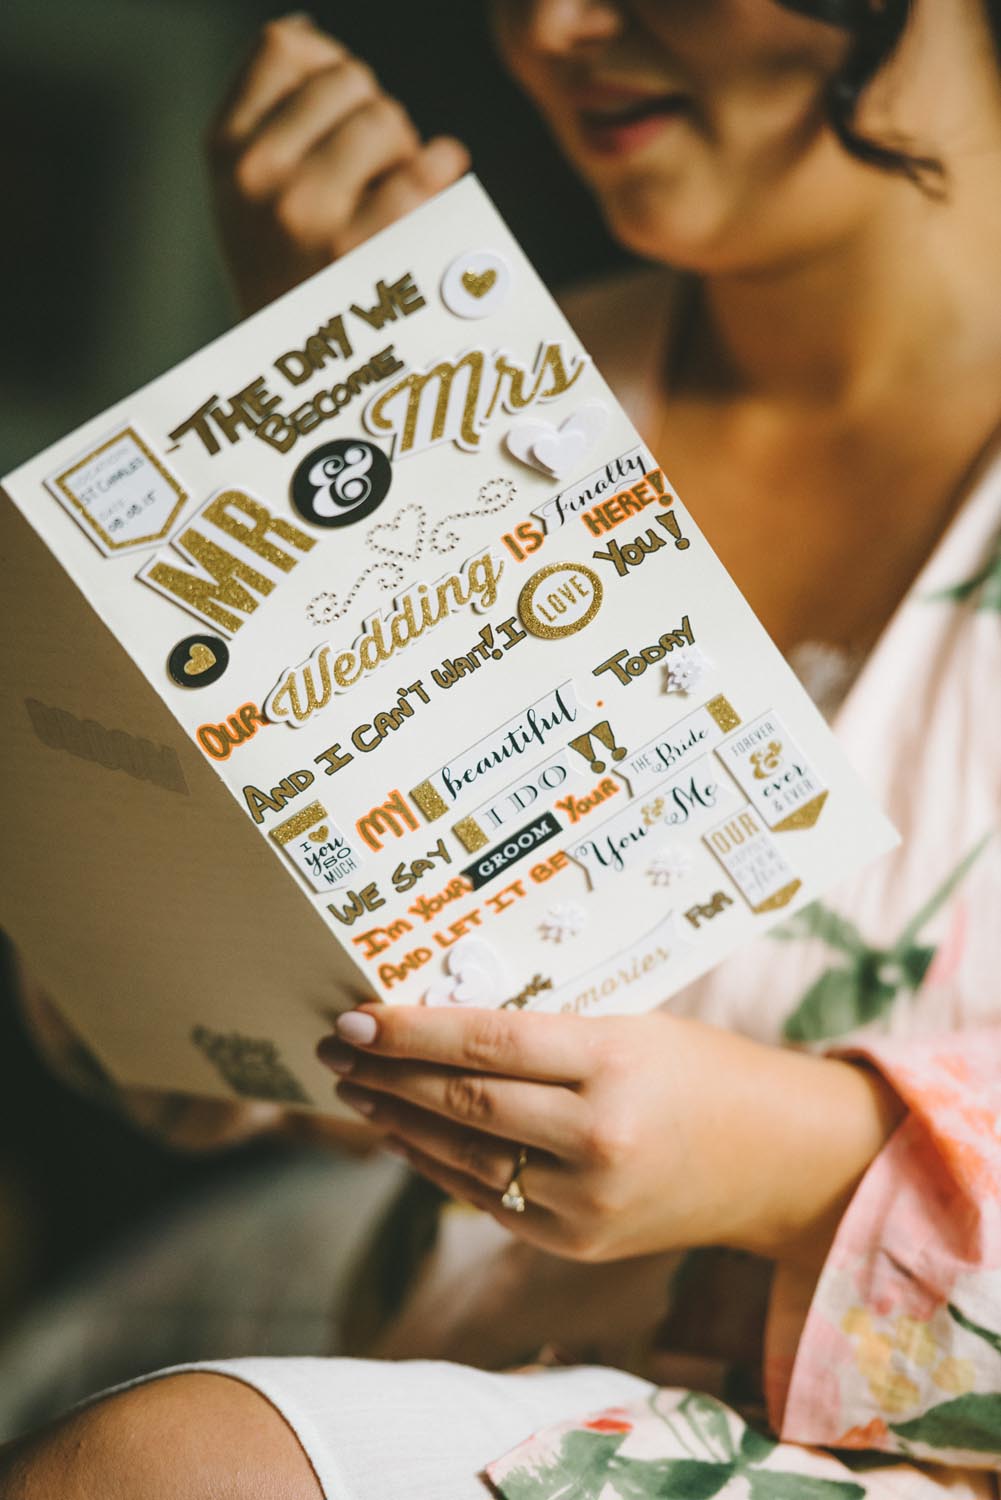 LOCATION:
ST CHARLES
DATE:
08.08.15
- THE DAY WE
BECOME
MR & Mrs
OUR Wedding IS Finally HERE!
AND I CAN'T WAIT! I LOVE YOU!
I
you
SO
MUCH
MY beautiful . TODAY
WE SAY I DO!!
I'M YOUR GROOM YOUR THE Bride
AND LET IT BE You & Me
FOREVER
&
ever
& EVER
OUR
ever
after
memories FOR